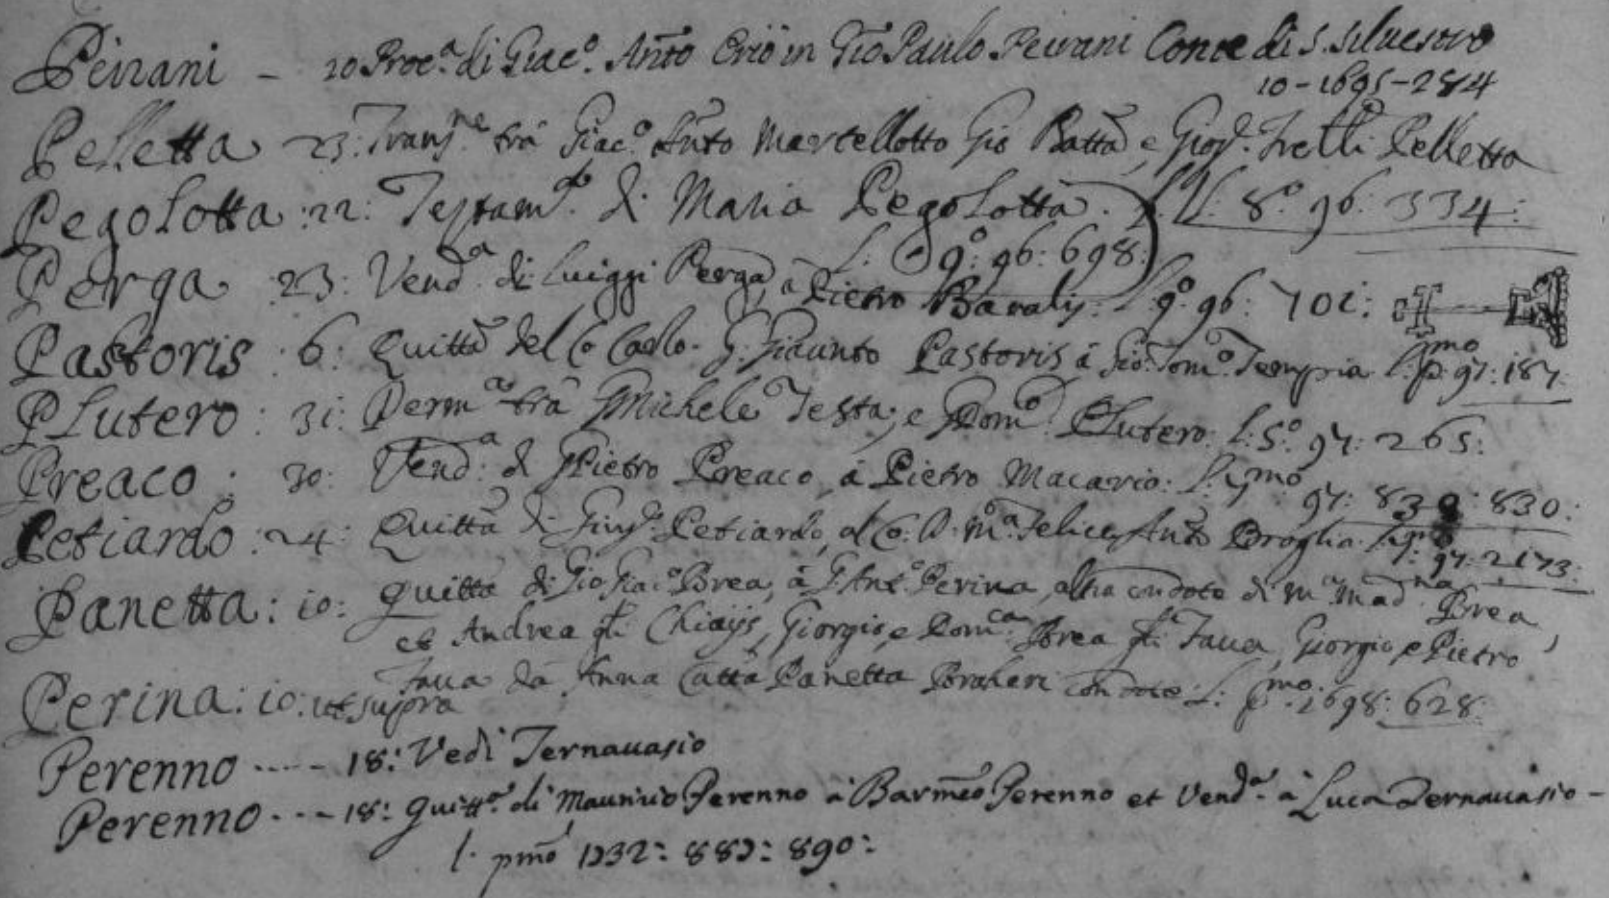 Peirani - 20 Proc.a di Giac.o Anto Orio in Gio Paulo Peirani Conte di S. Silvestro
10-1695-2814
Pelletta 23: Trans.ne trà Giac.o Anto Martellotto Gio Batta e Gios. fretlli Pelletta
L: 8.o 96: 334:
Pegolotta: 22: Testam.to di Maria Pegolotta.
L: 9.o 96: 698:
Perga 23: Vend.a di Luiggi Perga, à Pietro Baralis: L: 9.o 96: 701:
Pastoris: 6: Quitta del Co Carlo G. Giacinto Pastoris à Gio: Tom.o Tempia L: p.mo 97: 187
Plutero: 31: Perm.a trà Michele Testa, e Dom.o Plutero: L: 5.o 97: 265:
Preaco: 30: Vend.a di Pietro Preaco, à Pietro Macario: L: 97: 830:
Petiardo: 24: Quitta di Petiardo, al Co: D: M.a Felice Anto Broglia. 97: 2173:
Panetta: 10: quitta di Gio Giac.o Brea, à Ant.o Perina, altra con dote di M.a Mad.na Brea,
et Andrea Chiays, Giorgio, e Dom.ca Brea Faua, Giorgio e Pietro
Faua da Anna Catta Panetta con dote: L: p.mo: 1698: 628:
Perina: 10: ut supra
Perenno ---- 18: Vedi Ternauasio
Perenno --- 18: quitt.a di Mauritio Perenno à Barmeo Perenno et Vend.a à Luca Ternauasio -
l. pmo 1232: 882: 890: